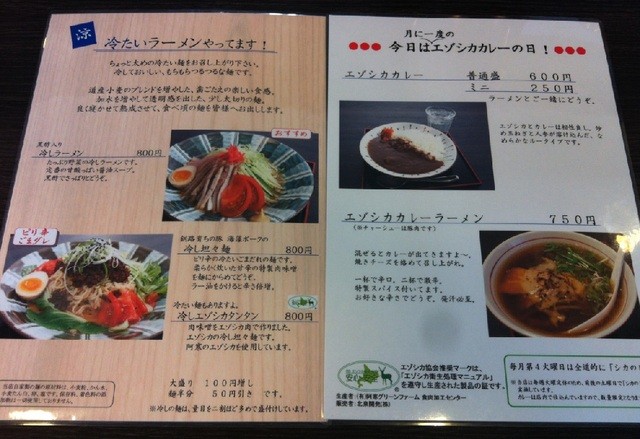 涼
冷たいラーメンやってます！
ちょっと太めの冷たい麺をお召し上がり下さい。
冷しておいしい、もちもちつるつるな麺です。
道産小麦のブレンドを増やした、歯ごたえの楽しい食感、
加水を増やして透明感を出した、少し大切りの麺。
良く寝かせて熟成させて、食べ頃の麺を皆様へお出しします。
おすすめ
黒酢入り
冷しラーメン 800円
たっぷり野菜の冷しラーメンです。
定番の甘酸っぱい醤油スープ。
黒酢でさっぱりとどうぞ。
ピリ辛
ごまダレ
釧路育ちの豚 海藻ポークの
冷し坦々麺 800円
ピリ辛の冷たいごまだれの麺です。
柔らかく炊いた甘辛の特製肉味噌
を麺にからめてどうぞ。
ラー油をかけると辛さ倍増。
冷たい麺もありますよ。
冷しエゾシカタンタン 800円
肉味噌をエゾシカ肉で作りました。
エゾシカの冷し坦々麺です。
阿寒のエゾシカを使用しています。
大盛り 100円増し
麺半分 50円引き です。
※冷しの麺は、量目を二割ほど多めで盛付けしています。
月に一度の
今日はエゾシカカレーの日！
エゾシカカレー 普通盛 600円
ミニ 250円
ラーメンとご一緒にどうぞ。
エゾシカとカレーは相性良し、炒
め玉ねぎと人参が溶け込んだ、な
めらかなルータイプです。
エゾシカカレーラーメン 750円
(※チャーシューは豚肉です)
混ぜるとカレーが出てきますよ～。
焼きチーズを絡めて召し上がれ。
一杯で辛口、二杯で激辛。
特製スパイス付いてます。
お好きな辛さでどうぞ。発汗必至。
安心
エゾシカ協会推奨マークは、
「エゾシカ衛生処理マニュアル」
を遵守し生産された製品の証です。
生産者：(有)阿寒グリーンファーム 食肉加工センター
販売者：北泉開発(株)
毎月第4火曜日は全道的に「シカの